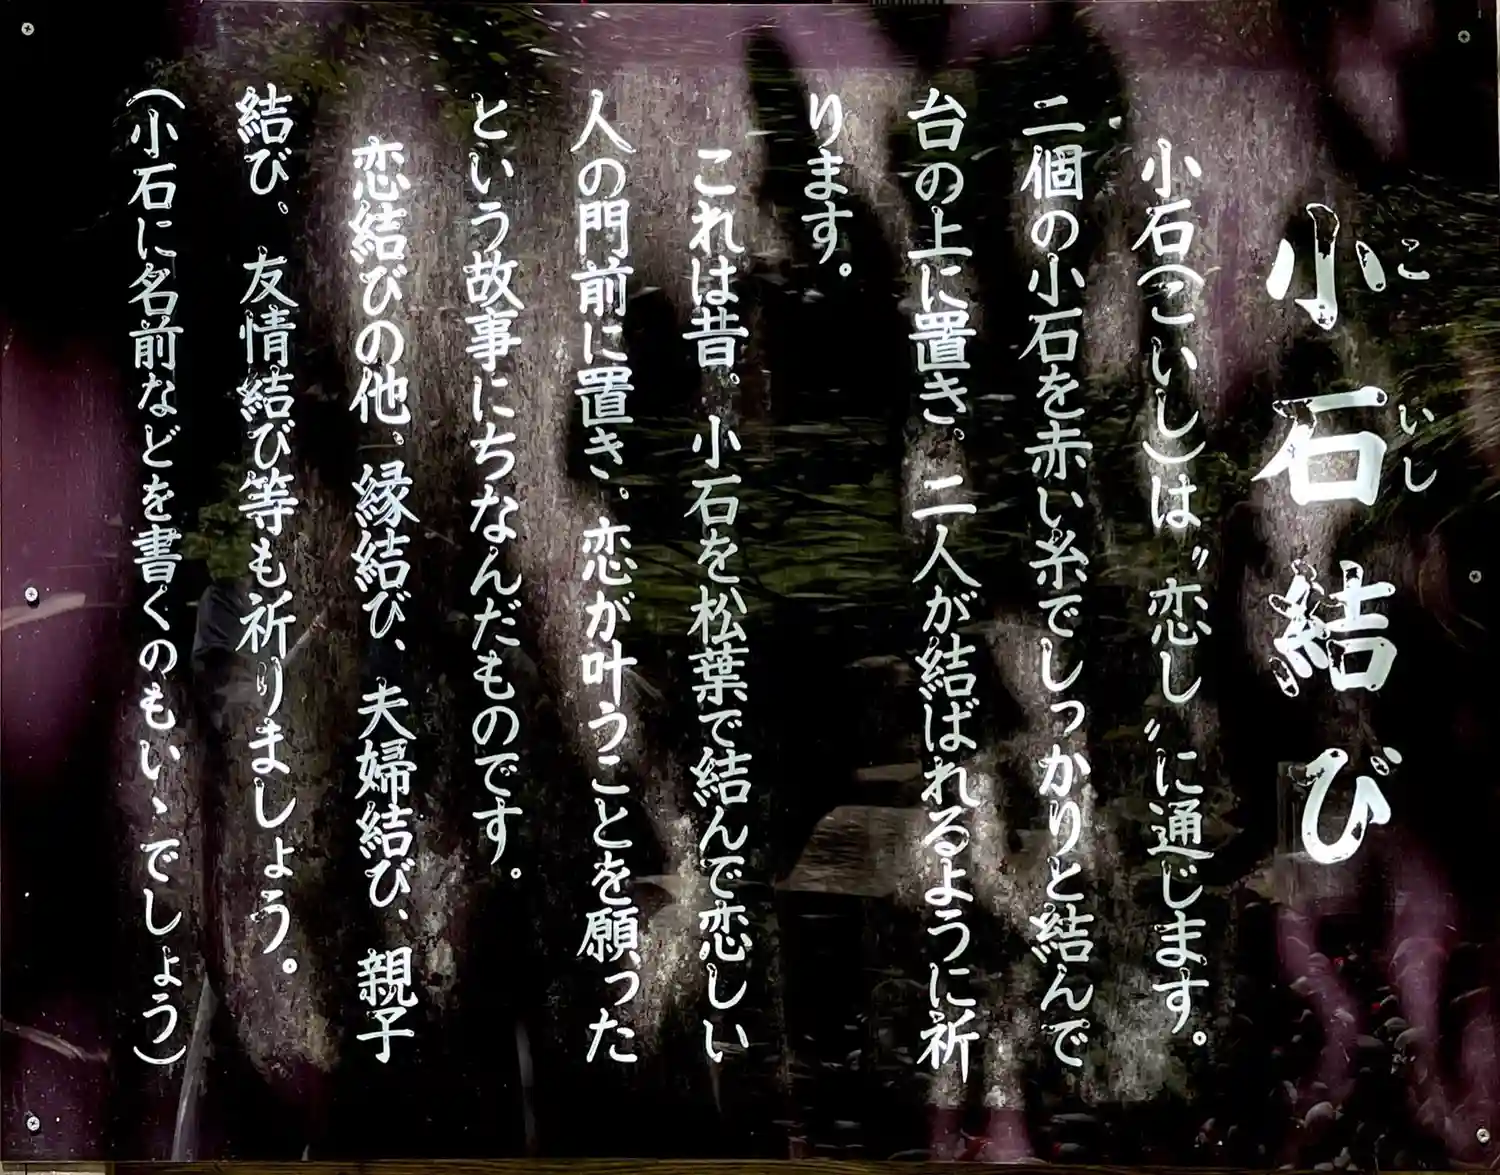 小石結び
こいし
小石(こいし)は〝恋し〟に通じます。
二個の小石を赤い糸でしっかりと結んで
台の上に置き、二人が結ばれるように祈
ります。
これは昔、小石を松葉で結んで恋しい
人の門前に置き、恋が叶うことを願った
という故事にちなんだものです。
恋結びの他、縁結び、夫婦結び、親子
結び、友情結び等も祈りましょう。
(小石に名前などを書くのもいゝでしょう)